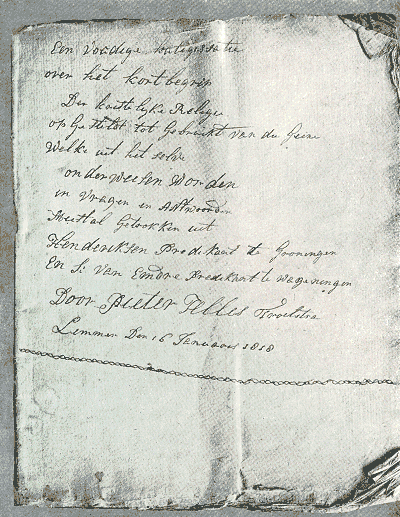 Een Voedige Catigesatie
over het kortbegrip
Der kristelyke Religie
opgesteld tot Gebruick van du Geene
Welke uit het selve
onderweesen Worden
in Vragen en Antwoorden
Meestal Getrokken uit
Henderiksen Predekant te Groningen
En S: Van Emdre Predekant te Wageningen
Door Pieter Jelles Troelstra
Lemmer Den 16 Januaris 1818